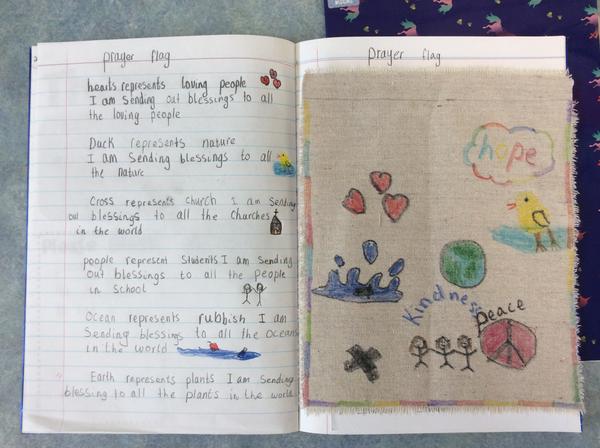 prayer flag
hearts represents loving people
I am Sending out blessings to all
the loving people
Duck represents nature
I am Sending blessings to all
the nature
Cross represents church I am Sending
out blessings to all the Churches
in the world
poople represent Students I am Sending
out blessings to all the people
in School
Ocean represents rubbish I am
Sending blessings to all the Oceans
in the world
Earth represents plants I am Sending
blessing to all the plants in the world
prayer flag
hope
Kindness
peace